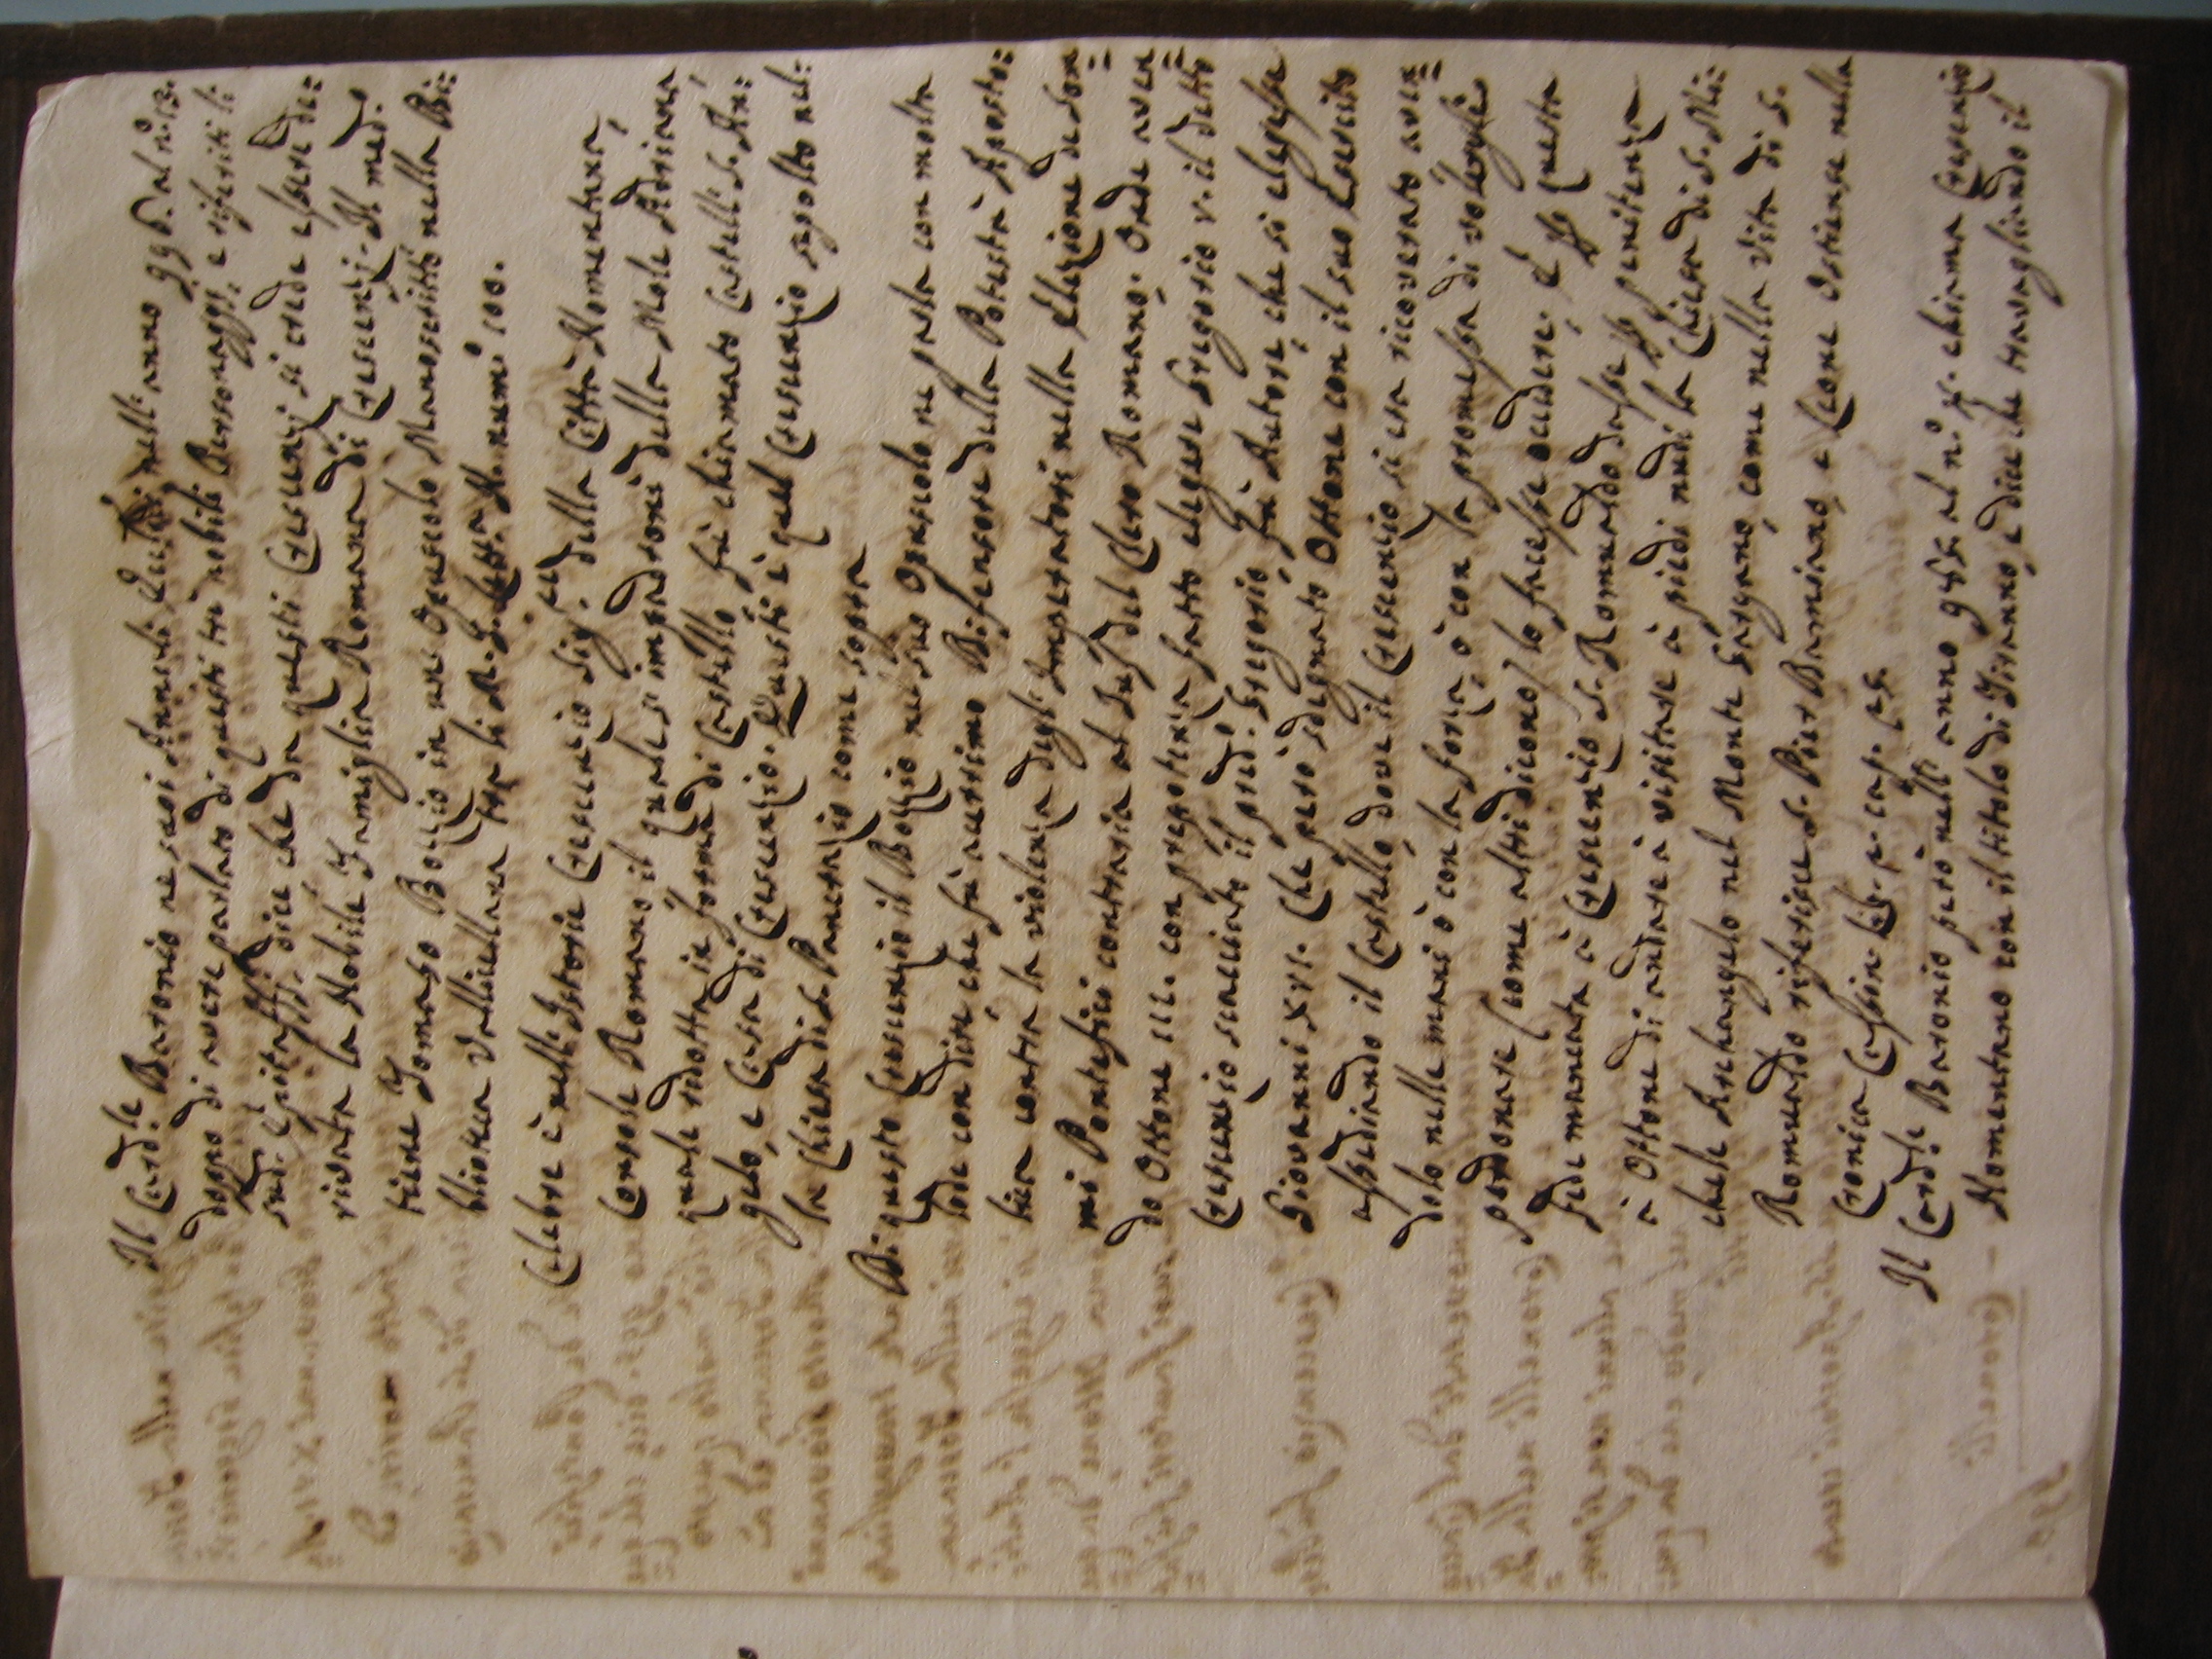 Il Card.le Baronio ne suoi Annali Eccl.ci nell'anno 996. al n.o 13.
doppo di avere parlato di questi trè nobili Personaggi, e riferiti li
sud.i Epitaffj, dice che da questi Crescenzj si crede essere de=
rivata la Nobile Famiglia Romana di Crescenzj. Il med.o
tiene Tomaso Bozzio in un Opuscolo Manoscritto nella Bi=
bliotica Vallicellana trà li m. s. lett.a H. num.o 100.
Celebre è nell'Istorie Crescenzio Sig.re della Città Nomentana,
Console Romano il quale s'impadronì della Mole Adriana,
quale ridotta in forma di Castello fù chiamato Castello S. An=
gelo, e Casa di Crescenzio. Questi è quel Crescenzio sepolto nel=
la Chiesa di S. Pancrazio come sopra
Di questo Crescenzio il Bozzio nel suo Opuscolo ne parla con molta
lode con dire che fù acerrimo Difensore della Potestà Aposto=
lica contra la violenza degl'Imperatori nella Elezione de Som=
mi Pontefici contraria al Jus del Clero Romano. Onde aven=
do Ottone III. con prepotenza fatto elegere Gregorio V. il detto
Crescenzio scacciato il pred.o Gregorio, fù Autore, che si elegesse
Giovanni XVI. Che però sdegnato Ottone con il suo Esercito
assediando il Castello dove il Crescenzio si era ricoverato aven=
dolo nelle mani ò con la forza, ò con la promessa di volergli
perdonare (come altri dicono) lo facesse occidere. E per questa
fede mancata à Crescenzio S. Romualdo dasse per penitenza
à Ottone di andare à visitare à piedi nudi la Chiesa di S. Mi=
chele Archangelo nel Monte Gargano, come nella Vita di S.
Romualdo riferisce S. Pier Damiano, e Leone Ostiense nella
Cronica Cassin. lib. 2. cap. 24.
Il Card.le Baronio però nell'anno 985. al n.o chiama Crescenzio
Nomentano con il titolo di Tiranno, e dice che travagliando il